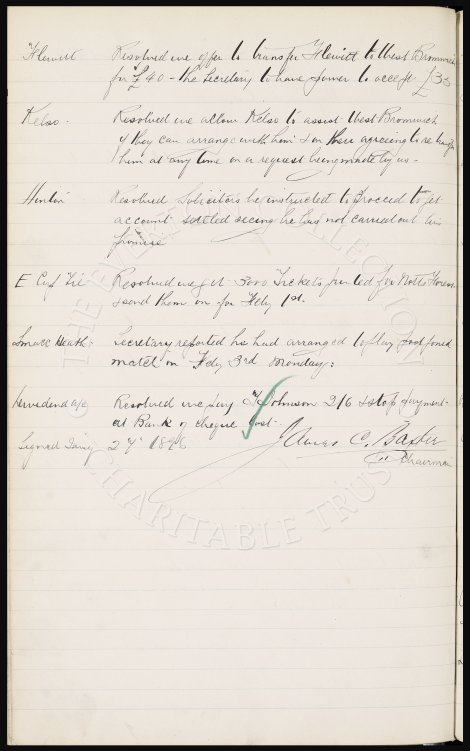 Hewitt Resolved we offer to transfer Hewitt to West Bromwich
for £40 - the Secretary to have power to accept £35
Kelso - Resolved we allow Kelso to assist West Bromwich
if they can arrange with him & on their agreeing to re transfer
him at any time on a request being made by us -
Hinton Resolved Solicitors be instructed to proceed to get
account settled seeing he has not carried out his
promise
E Cup Tie Resolved we get 3000 Tickets printed for Notts Forest
& send them on for Feby 1st.
Small Heath: Secretary reported he had arranged to play postponed
match on Feby 3rd Monday:
Dividend a/c Resolved we pay Johnson 2/6 & stop payment
at Bank of cheque lost
Signed Jany 27 1896 James C. Baxter
Chairman
© THE EVERTON COLLECTION
CHARITABLE TRUST